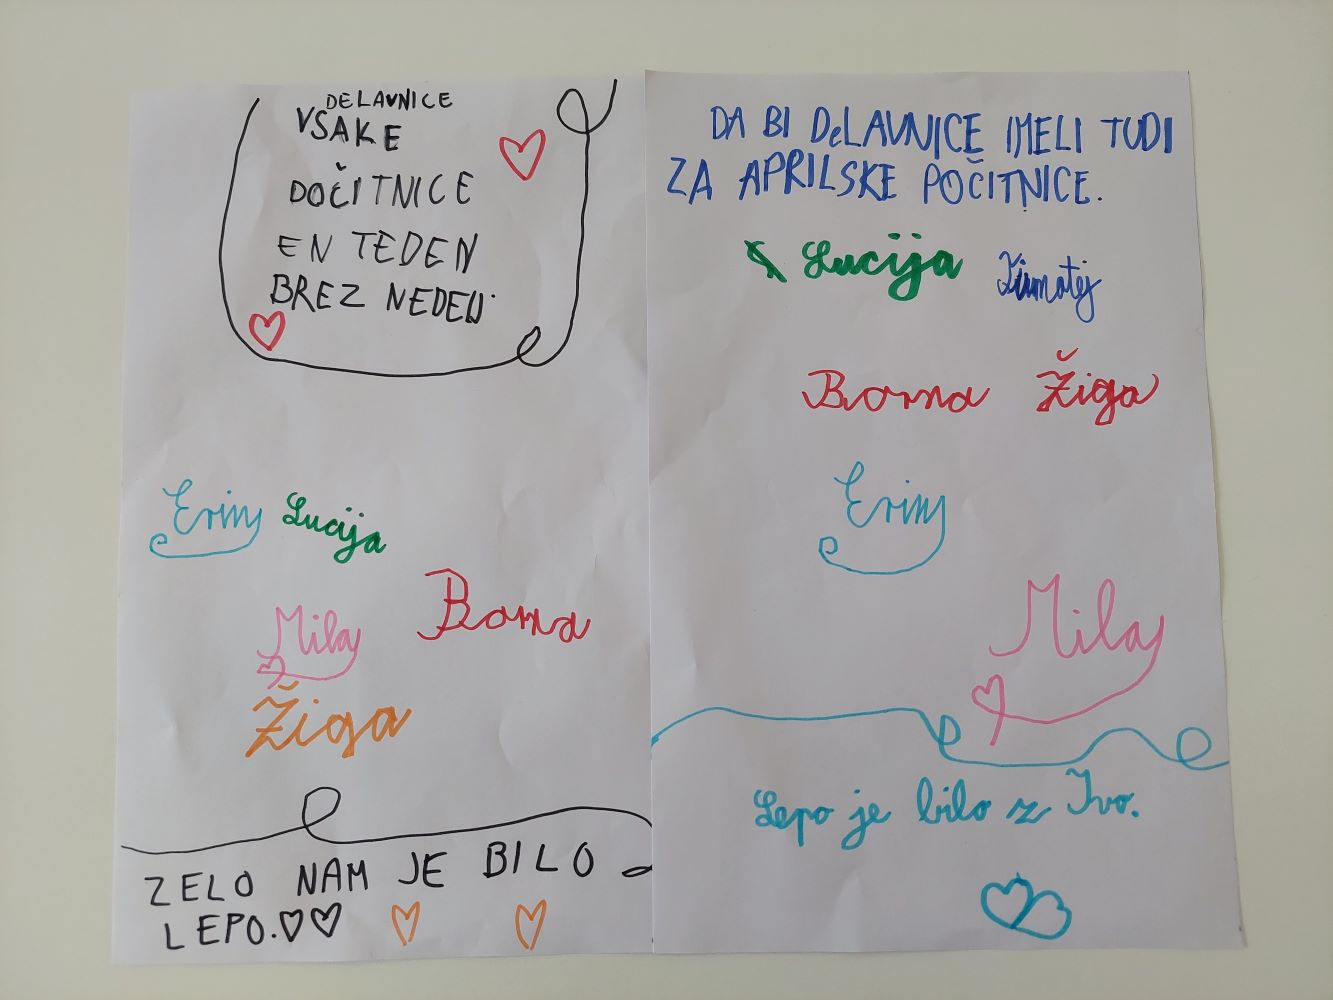 DELAVNICE
VSAKE
DOČITNICE
EN TEDEN
BREZ NEDELJ.
Erin Lucija
Mila
Borna
Žiga
ZELO NAM JE BILO
LEPO.
DA BI DeLAVNICE IMELI TUDI
ZA APRILSKE POČITNICE.
Lucija Timotej
Borna Žiga
Erin
Mila
Lepo je bilo z Ivo.